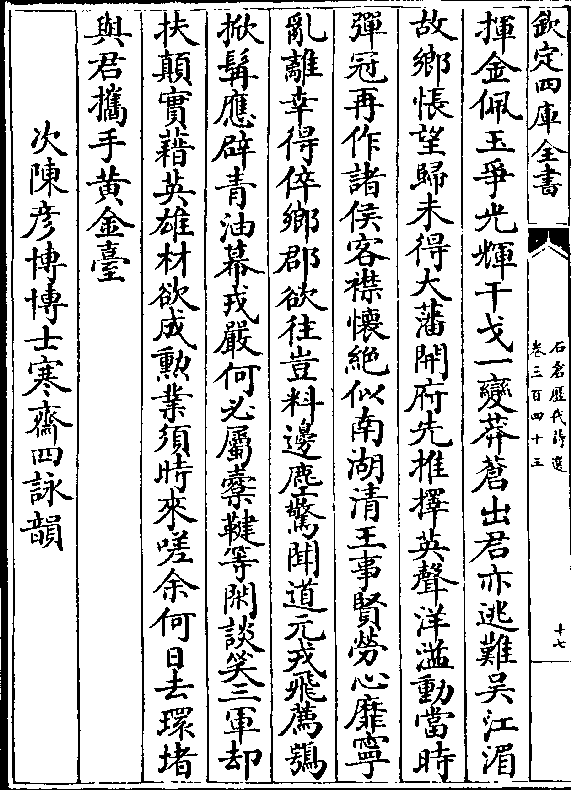 欽定四庫全書
石倉歷代詩選
卷三百四十三
十七
揮金佩玉爭光輝干戈一變莽蒼出君亦逃難吳江湄
故鄉悵望歸未得大藩開府先推擇英聲洋溢動當時
彈冠再作諸侯客襟懷絶似南湖清王事賢勞心靡寧
亂離幸得倅鄉郡欲往豈料邊塵驚聞道元戎飛薦鶚
掀髯應辟青油幕戎嚴何必屬櫜鞬等閑談笑三軍却
扶顛實藉英雄材欲成勲業須時來嗟余何日去環堵
與君攜手黄金臺
次陳彦博博士寒齋四詠韻